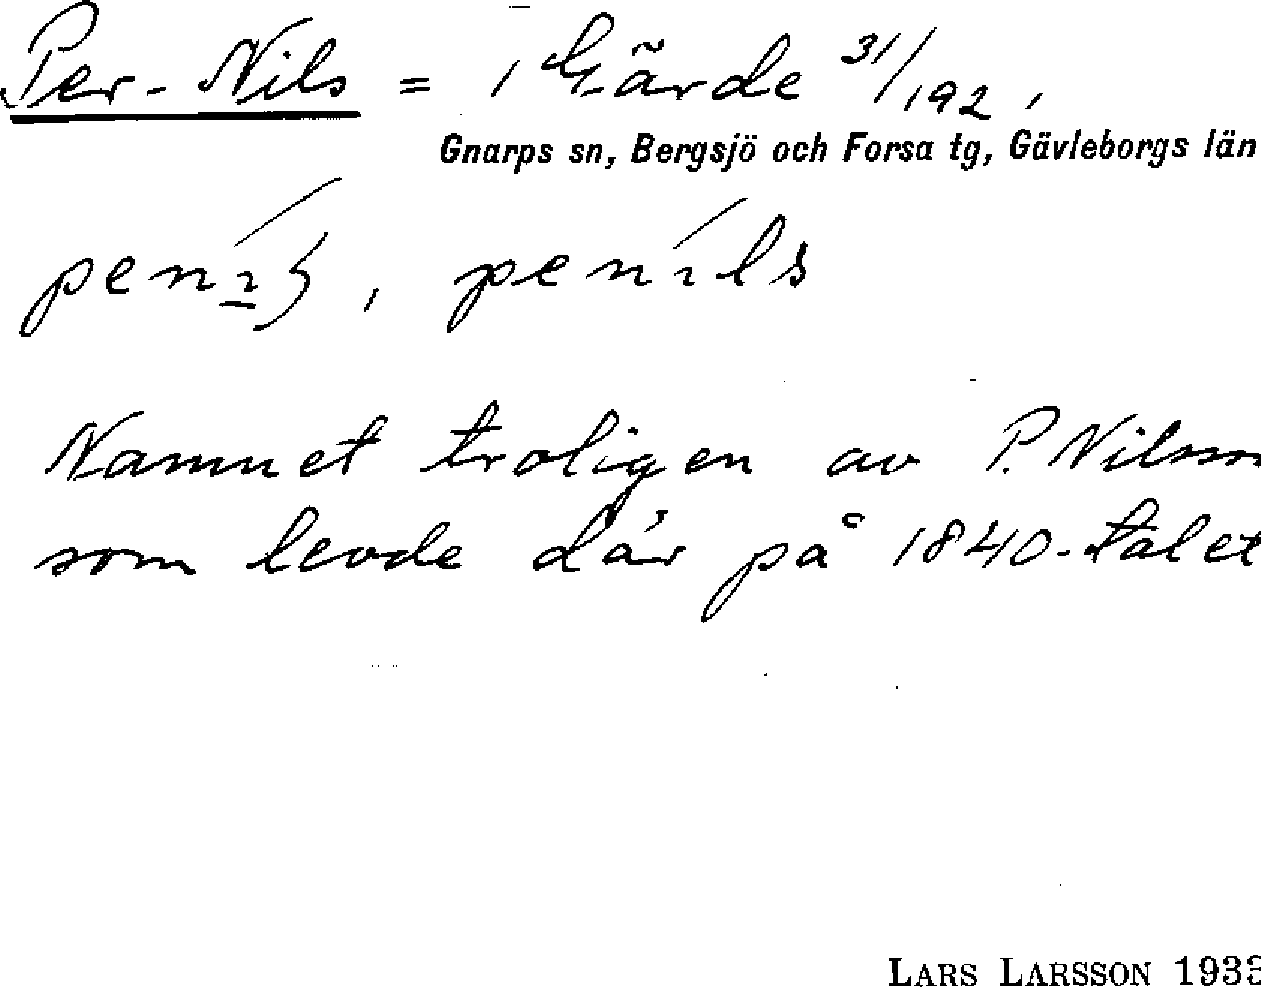 Per-Nils = 1 Gärde 31/192,
Gnarps sn, Bergsjö och Forsa tg, Gävleborgs län
penils
Namnet troligen av P. Nilsson
som levde där på 1840-talet
LARS LARSSON 193